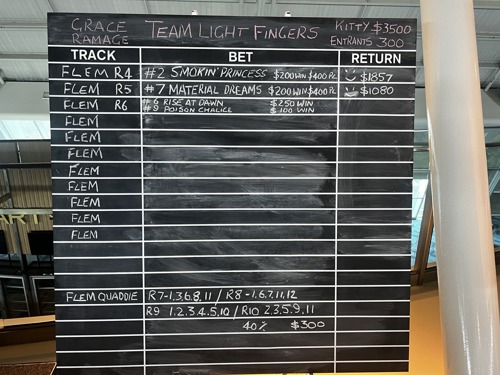 GRACE RAMAGE TEAM LIGHT FINGERS KITTY $3500
ENTRANTS 300
TRACK BET RETURN
FLEM R4 #2 SMOKIN' PRINCESS $200 WIN $400 PL $1857
FLEM R5 #7 MATERIAL DREAMS $200 WIN $400 PL $1080
FLEM R6 #6 RISE AT DAWN $250 WIN
#9 POISON CHALICE $100 WIN
FLEM
FLEM
FLEM
FLEM
FLEM
FLEM
FLEM
FLEM
FLEM QUADDIE R7-1,3,6,8,11 / R8-1,6,7,11,12
R9 1,2,3,4,5,10 / R10 2,3,5,9,11
40% $300